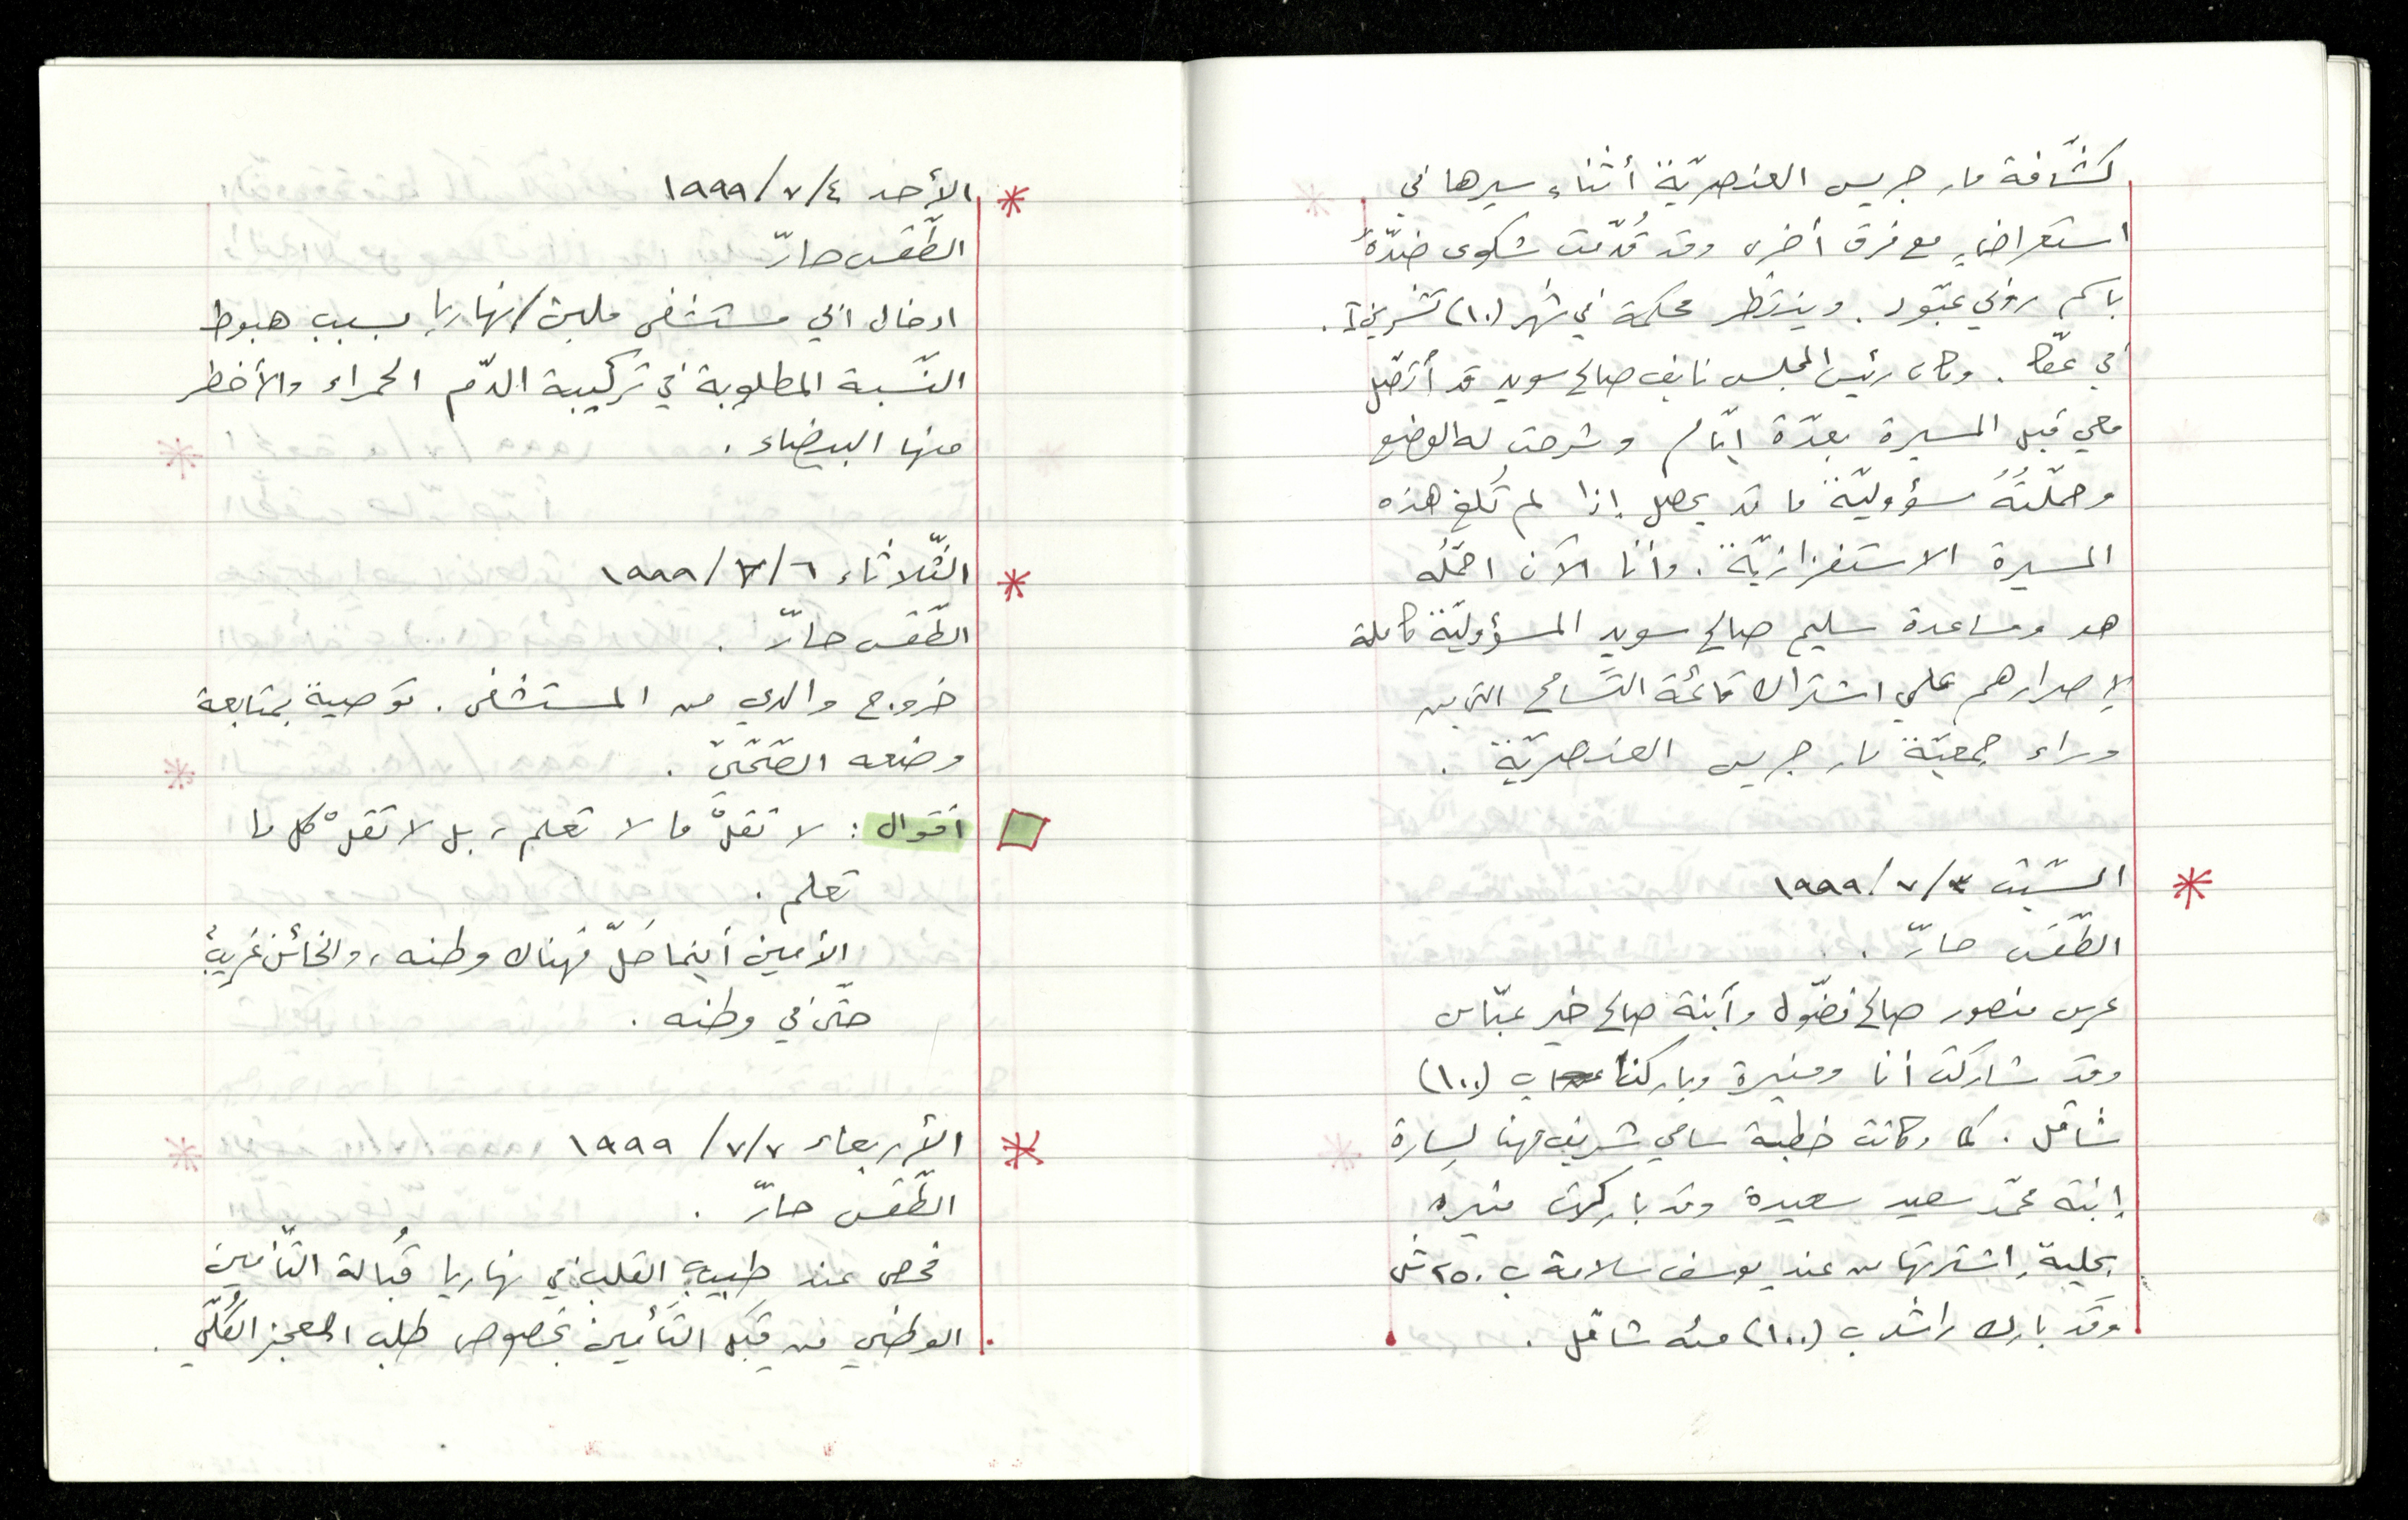 كشّافة مار جريس العنصريّة أثناء سيرها في
استعراضٍ مع فرق أخرى وقد قُدّمت شكوى ضدّهُ
باسم روني عبّود. وينتظر محكمة في شهر (١٠) تشرين١.
في عكّا. وكان رئيس المجلس نايف صالح سويد قد أتّصل
معي قبل المسيرة بعدّة ايّام وشرحت له الوضع
وحمّلتُهُ مسؤوليّة ما قد يحصل إذا لم تُلغ هذه
المسيرة الاستفزازيّة. وأنا الآن احمّلُه
هو ومساعده سليم صالح سويد المسؤوليّة كاملة
لإصرارهم على اشتراك قائمة التّسامح التي من
وراء جمعيّة مار جريس العنصريّة.
* السّبت ٣/٧/١٩٩٩
الطّقس حارّ.
عرس منصور صالح فضّول وأبنة صالح خير عبّاس
وقد شاركت أنا ومنيرة وباركنا ب (١٠٠)
شاقل. كما وكانت خطبة سامي شريف مهنا لسارة
إبنة محمّد سعيد سعيدة وقد باركت منيره
بحليةٍ اشترتها من عند يوسف سلامة ب ٢٥٠ ش
وقد بارك راشد ب (١٠٠) مئه شاقل.
* الأحد ٤/٧/١٩٩٩
الطّقس حارّ
ادخال ابي مستشفى نهاريا بسبب هبوط
النّسبة المطلوبة في تركيبة الدّم الحمراء والأخطر
منها البيضاء.
* الثّلاثاء ٦/٧/١٩٩٩
الطّقس حارّ.
خروج والدي من المستشفى. توصية بمتابعة
وضعه الصّحّيّ.
أقوال: لا تقلْ ما لا تعلم، بل لا تقلْ كل ما
تعلم.
الأمين أينما حَلّ فهناك وطنه، والخائن غريبٌ
حتّى في وطنه.
* الأربعاء ٧/٧/١٩٩٩
الطّقس حارّ.
فحص عند طبيب القلب في نهاريا قُبالة التّأمين
الوطني من قِبَل التّأمين بخصوص طلب المعجز الكُلّي.